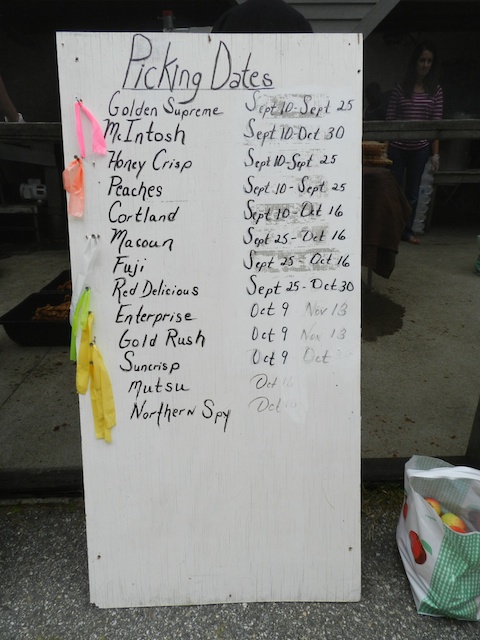 Picking Dates
Golden Supreme Sept 10-Sept 25
McIntosh Sept 10-Oct 30
Honey Crisp Sept 10-Sept 25
Peaches Sept 10-Sept 25
Cortland Sept 10-Oct 16
Macoun Sept 25-Oct 16
Fuji Sept 25-Oct 16
Red Delicious Sept 25-Oct 30
Enterprise Oct 9 Nov 13
Gold Rush Oct 9 Nov 13
Suncrisp Oct 9 Oct
Mutsu Oct
Northern Spy Oct